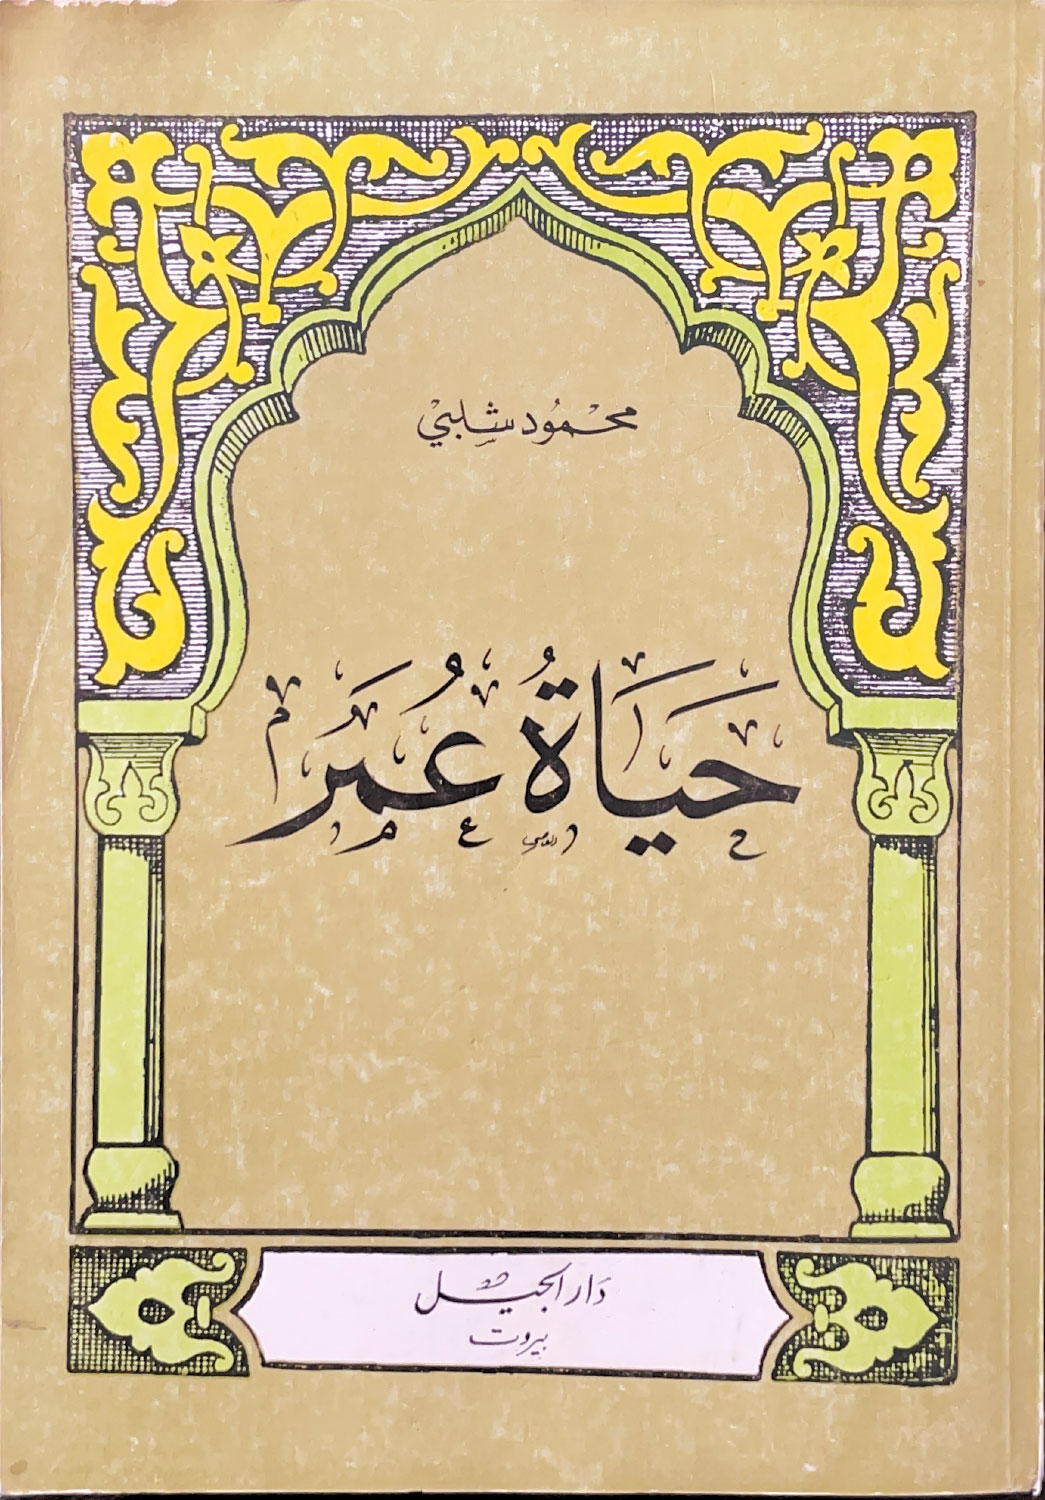 محمُود شلبيْ
حَيَاةُ عُمَرَ
دَار الجيل
بيروت